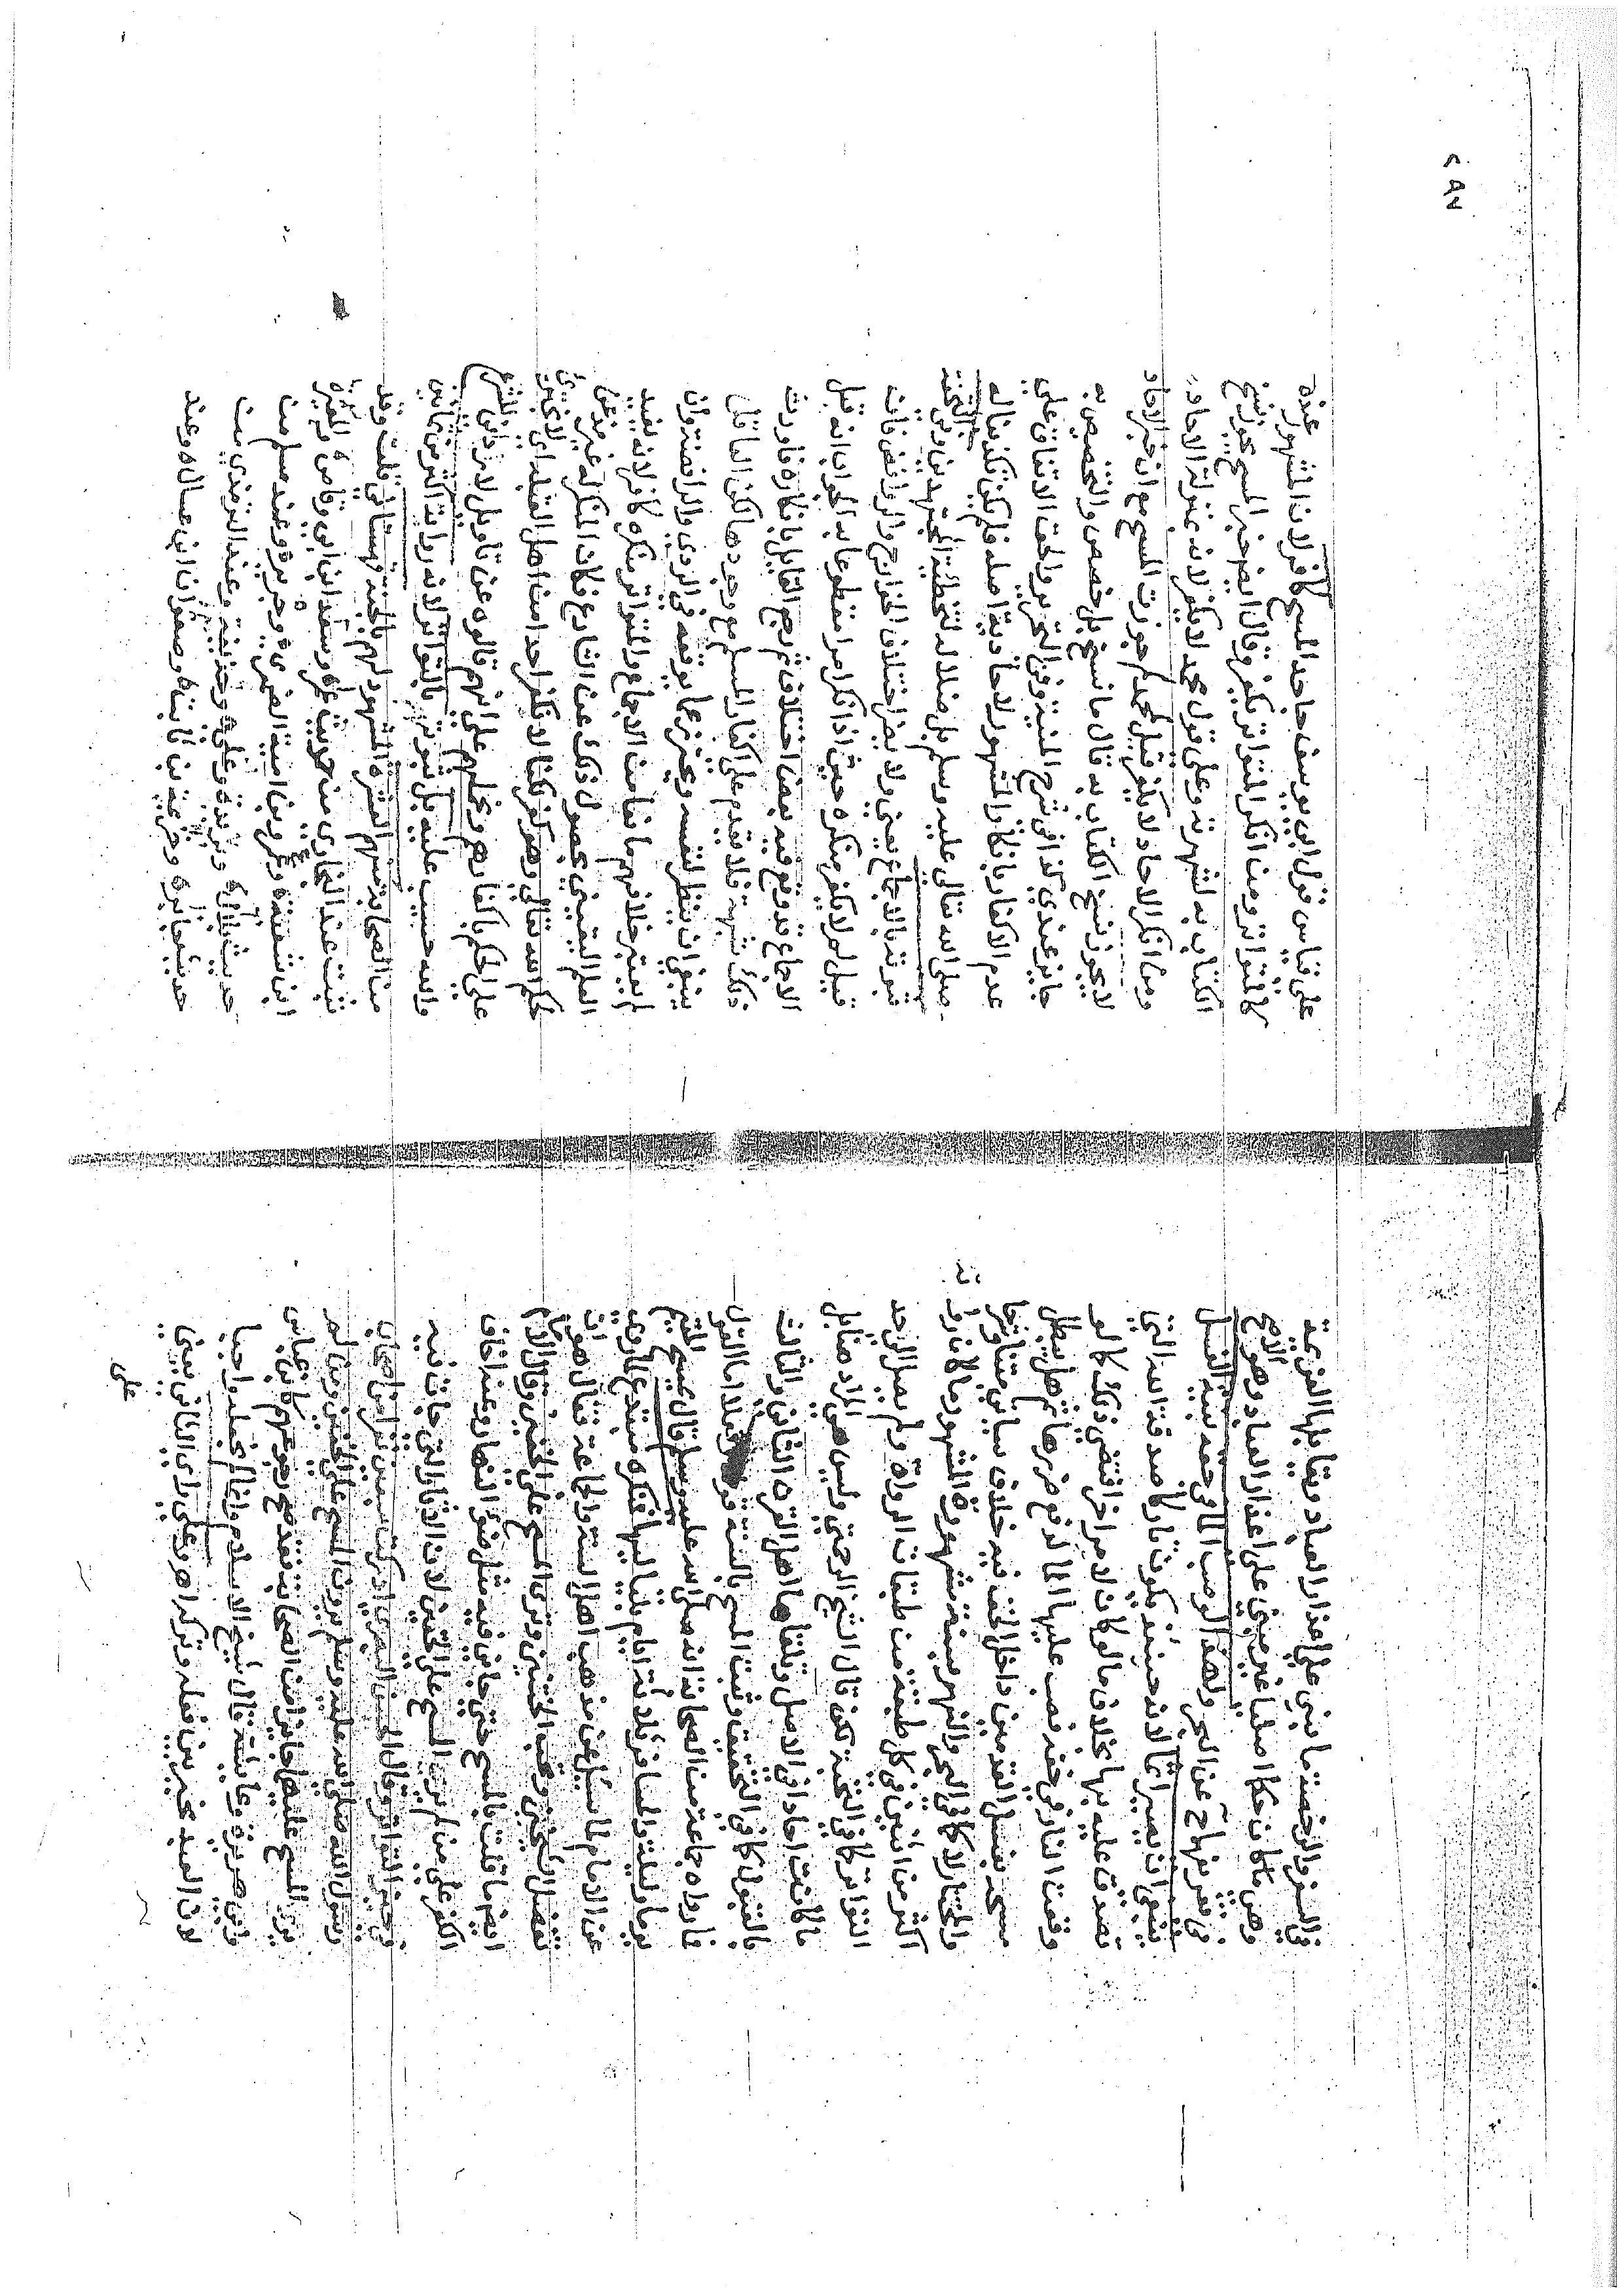 في السفر والرخصة ما بني على اعذار العباد ويقابلها العزيمة
وهي ما كان حكما اصليا غير مبني على اعذار العباد وهو الاصح
في تعريفهما عن البحر ولهذا لو صب الماء في خفه بنية الغسل
ينبغي ان يصير اثما لانه حينئذ يكون تاركا صدقة الله التي
تصدق عليه بها بخلاف ما لو كان الامر اخر اقتضى ذلك كما لو
وقعت النار في خفه فصب عليها الماء لدفع ضررها ثم هل يبطل
مسحه بغسل القدمين داخل الخف فيه خلاف سياتي متنا وشرحا
والمختار لا كما في البحر والنهر بسنة مشهورة المشهور ما كان رواته
اكثر من اثنين في كل طبقة من طبقات الرواة ولم يصل الى حد
التواتر كما في النخبة لكن قال الشيخ الرحمتي وليس هي المراد هنا بل
ما كانت احادا في الاصل وتلقاها اهل القرن الثاني والثالث
بالقبول كما في التحقيق وثبت المسح بالسنة قولا وفعلا اما القول
فما رواه جماعة من الصحابة انه صلى الله عليه وسلم قال يمسح المقيم
يوما وليلة والمسافر ثلاثة ايام بلياليها فمنكره مبتدع لما روي
عن الامام لما سئل عن مذهب اهل السنة والجماعة فقال هو ان
تفضل الشيخين وتحب الختنين وترى المسح على الخفين وقال الامام
ايضا ما قلت بالمسح حتى جاءني فيه مثل ضوء النهار وعنه اخاف
الكفر على من لم ير المسح على الخفين لان الاثار التي جاءت فيه
في حيز التواتر وقال الحسن البصري ادركت سبعين نفرا من اصحاب
رسول الله صلى الله عليه وسلم يرون المسح على الخفين ومن لم
ير المسح عليهما جائزا من الصحابة فقد صح رجوعهم كابن عباس
وابي هريرة وعايشة قال شيخ الاسلام وانما لم يجعله واجبا
لان العبد مخير بين فعله وتركه اهـ وعلى راي الثاني يعني
على
على قياس قول ابي يوسف جاحد المسح كافر لان المشهور عنده
كالمتواتر ومن انكر المتواتر يكفر وقال ايضا خبر المسح يجوز نسخ
الكتاب به لشهرته وعلى قول محمد لا يكفر لانه بمنزلة الاحاد
ومن انكر الاحاد لا يكفر قيل لمحمد لم جوزت المسح مع ان خبر الاحاد
لا يجوز نسخ الكتاب به قال ما نسخ بل خصص والتخصيص به
جايز عندي كذا في شرح المنية وفي التحرير والحق الاتفاق على
عدم الاكفار بانكار المشهور لاحادية اصله فلم يكن تكذيبا له
صلى الله تعالى عليه وسلم بل ضلالة لتخطئة المجتهدين وفي التحفة
ثبوته بالاجماع يعني ولا يضر اختلاف الخوارج والروافض فان
قيل لم لا يكفر منكره حينئذ اذا انكر امرا مقطوعا به الجواب انه قيل
الاجماع قد وقع فيه بعض اختلاف ثم رجع القايل بانكاره فاورث
ذلك شبهة فلا يقدم على اكفار المسلم مع وجودها لكن العاقل
ينبغي ان ينظر لنفسه ويحترز عما يوقعه في الردى والرافضة وان
لم يعتبر خلافهم مانعا من الاجماع والمتواتر منكره كافر لانه يفيد
العلم اليقيني بحصول ذلك عن الشارع فكان المنكر له غير مذعن
لحكم الله تعالى وهو كفر لكنا لا نكفر احدا من اهل القبلة اي لا نجترئ
على الحكم باكفارهم ونحملهم على انهم قالوه عن تاويل لاعن دافع للشرع
والله حسيب عليه بل ثبوته بالتواتر لانه رواية اكثر من ثمانين
من الصحابة منهم العشرة المشهود لهم بالجنة قهستاني قلت وقد
ثبت عند البخاري من حديث عمر وسعد ابن ابي وقاص والمغيرة
ابن شعبة وعمرو بن امية الضمري وجرير وعند مسلم من
حديث بلال وبريدة وعلي وحذيفة وعند الترمذي من
حديث جابر وخزيمة بن ثابت وصفوان ابن عسال وعند